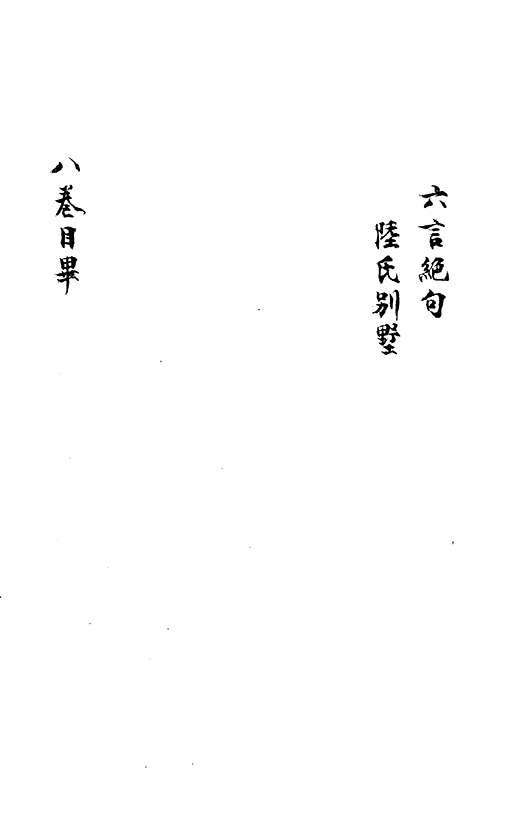 六言絕句
陸氏别墅
八卷目畢